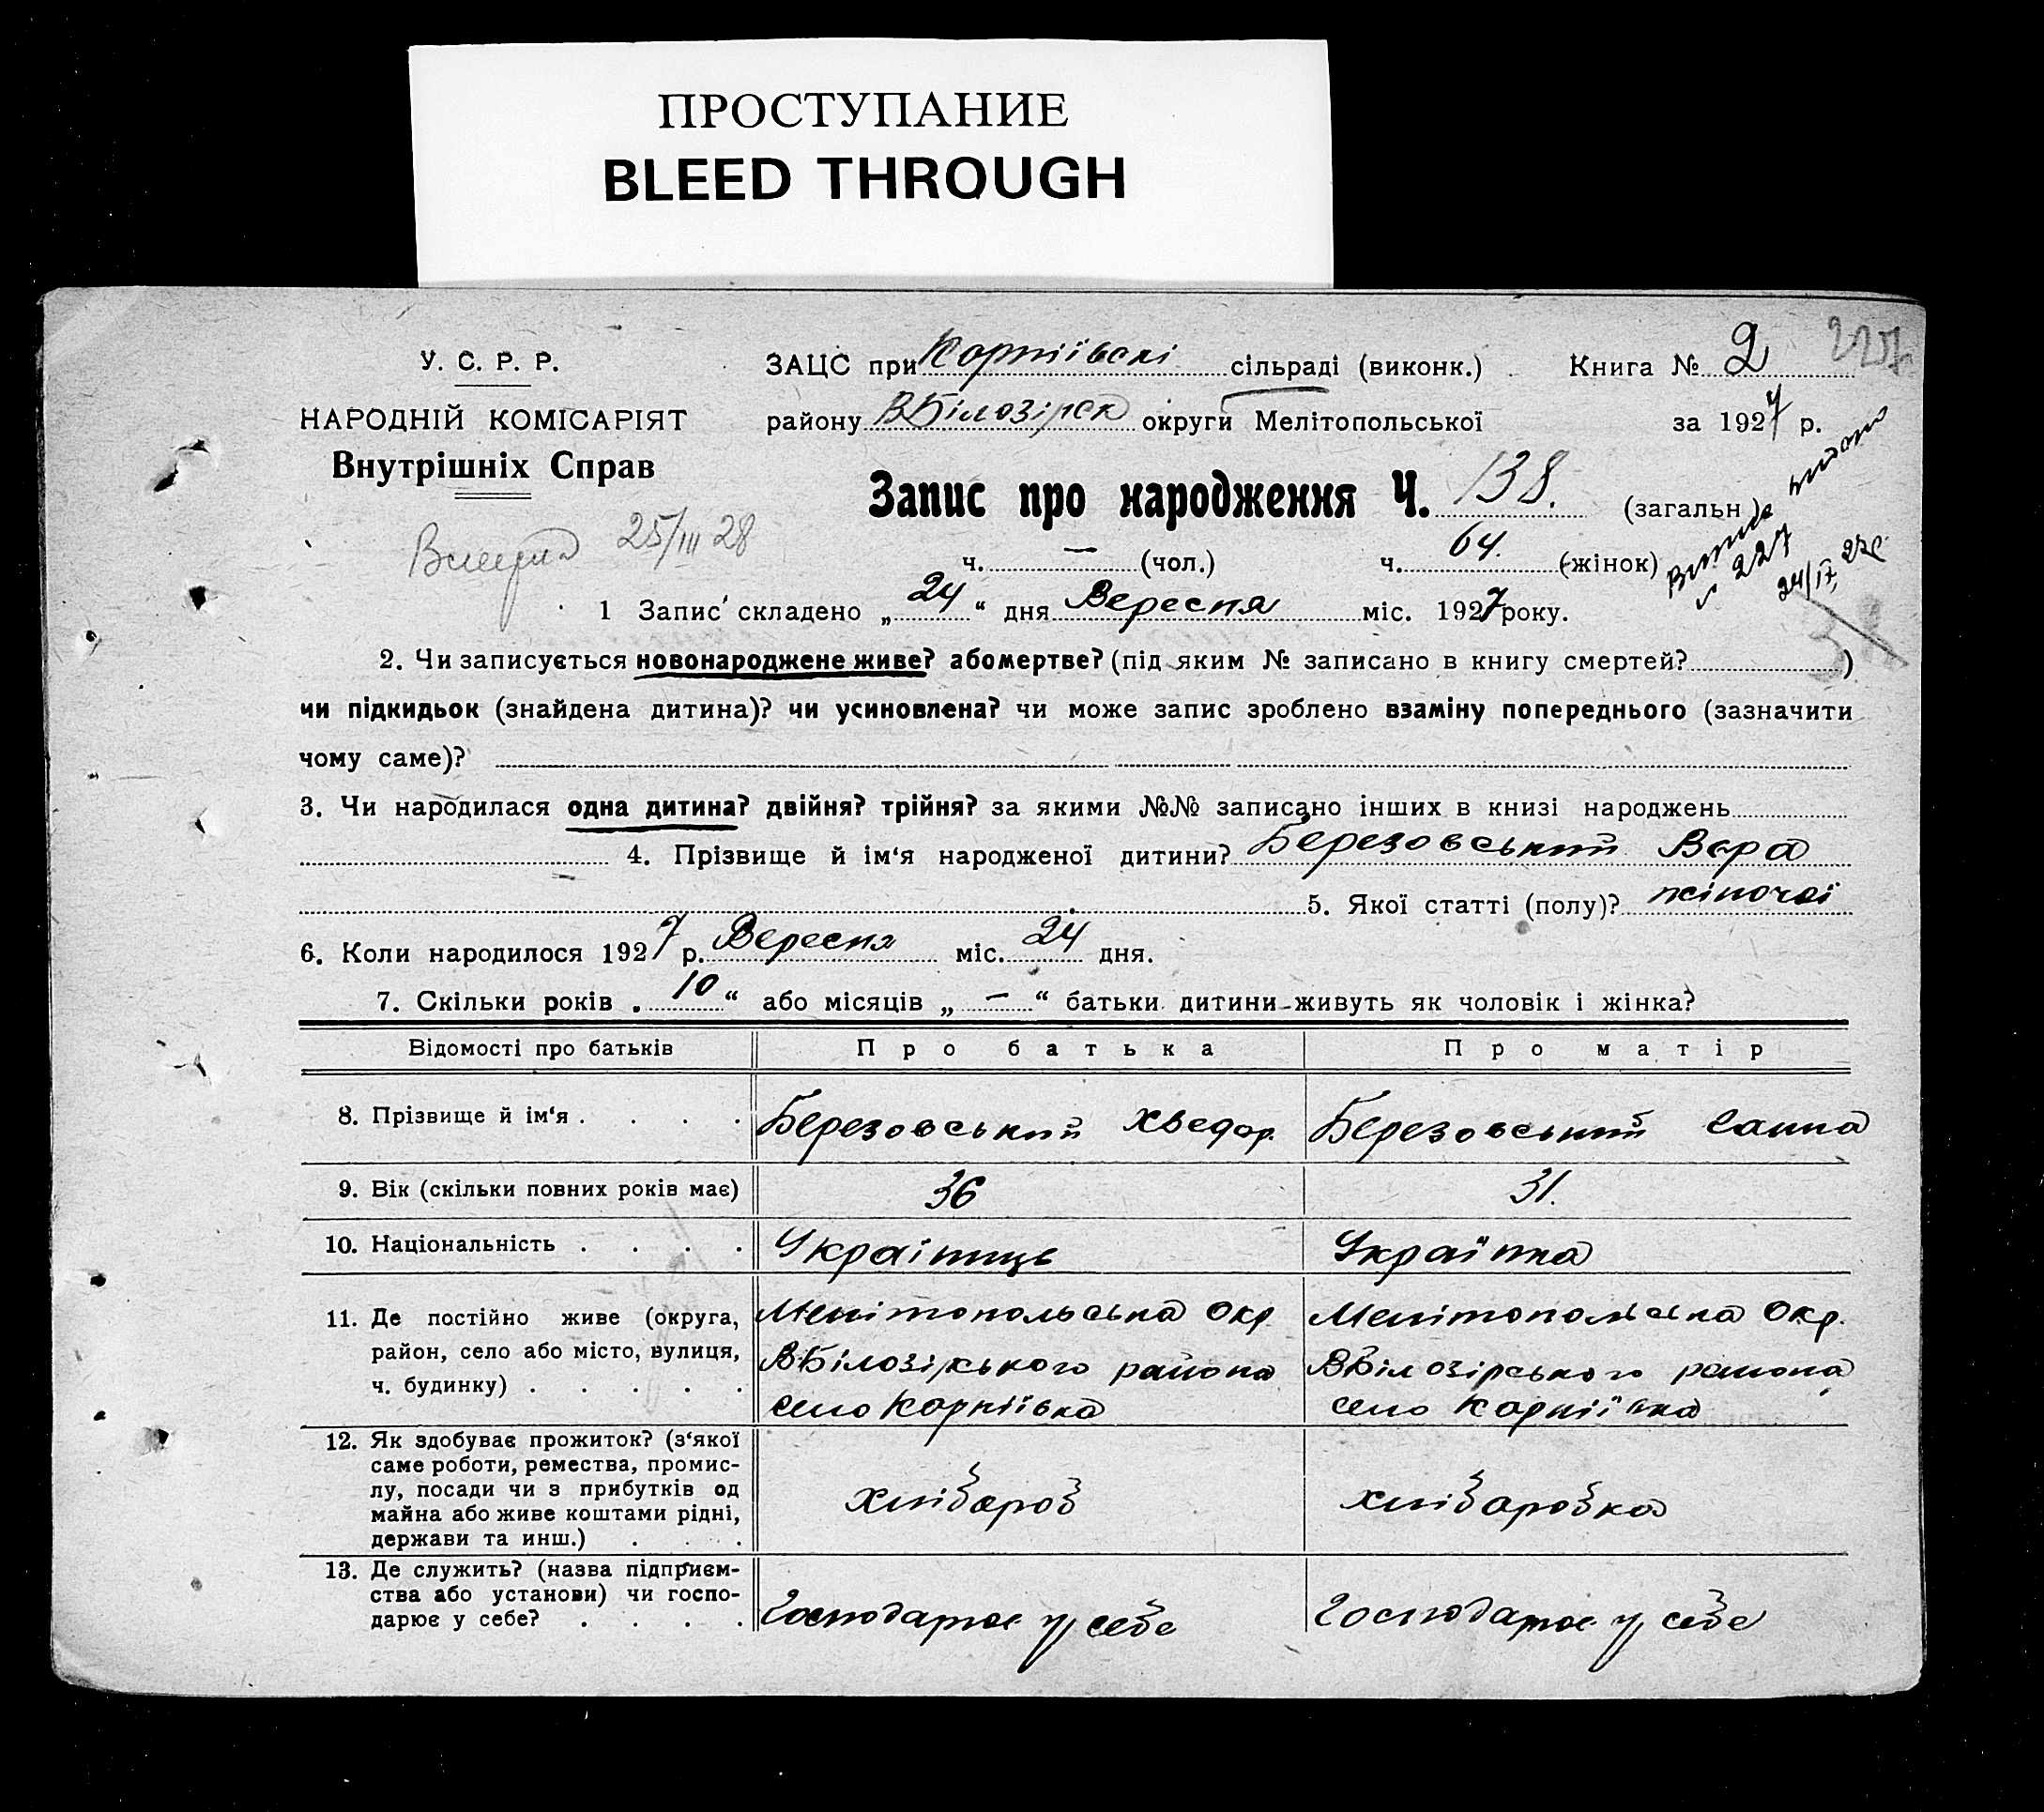 ПРОСТУПАНИЕ
BLEED THROUGH
У. С. Р. Р.
НАРОДНІЙ КОМІСАРІЯТ
Внутрішніх Справ
ЗАЦС при Корніївскі сільраді (виконк.) Книга № 2 227
району ВБілозірск округи Мелітопольської за 1927 р.
Запис про народження Ч. 138. (загальн.)
ч. — (чол.) ч. 64. (жінок)
Витяг видано
227
24/IX 27
Вмерла 25/III 28
1 Запис складено „ 24 “ дня Вересня міс. 1927 року.
2. Чи записується новонароджене живе? або мертве? (під яким № записано в книгу смертей? )
чи підкидьок (знайдена дитина)? чи усиновлена? чи може запис зроблено взаміну попереднього (зазначити
чому саме)?
3. Чи народилася одна дитина? двійня? трійня? за якими №№ записано інших в книзі народжень
4. Прізвище й ім‘я народженої дитини? Березовський Вера
5. Якої статті (полу)? жіночої
6. Коли народилося 1927 р. Вересня міс. 24 дня.
7. Скільки років „ 10 “ або місяців „ — “ батьки дитини живуть як чоловік і жінка?
Відомості про батьків Про батька Про матір
8. Прізвище й ім‘я . . . . Березовський Хведор. Березовський Ганна
9. Вік (скільки повних років має) 36 31.
10. Національність . . . . Українець Українка
11. Де постійно живе (округа,
район, село або місто, вулиця,
ч. будинку) . . . . .
Мелітопольська Окр.
ВБілозірського района
село Корніївка
Мелітопольська Окр.
ВБілозірського района
село Корніївка
12. Як здобуває прожиток? (з‘якої
саме роботи, ремества, промис-
лу, посади чи з прибутків од
майна або живе коштами рідні,
держави та инш.) . . .
хлібароб
хлібаробка
13. Де служить? (назва підприєм-
ства або установи) чи госпо-
дарює у себе? . . . .
Господарює у себе
Господарює у себе